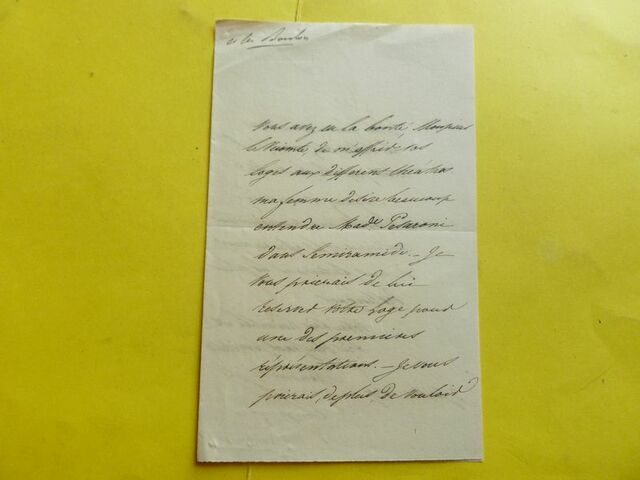 Vous avez eu la bonté Monsieur
le Vicomte, de m'offrir vos
loges aux different théatres
ma femme désire beaucoup
entendre Mad.e Pesaroni
dans Semiramide. - Je
vous prierais de lui
reserver votre loge pour
une des premieres
réprésentations. - Je vous
prierais, de plus de vouloir